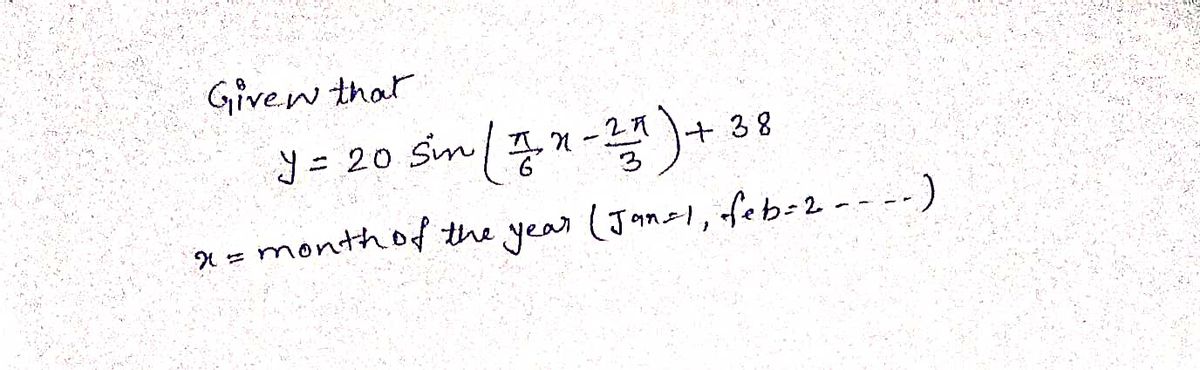 Given that
y = 20 sin(π/6 x - 2π/3) + 38
x = month of the year (Jan=1, feb=2 - - - -)